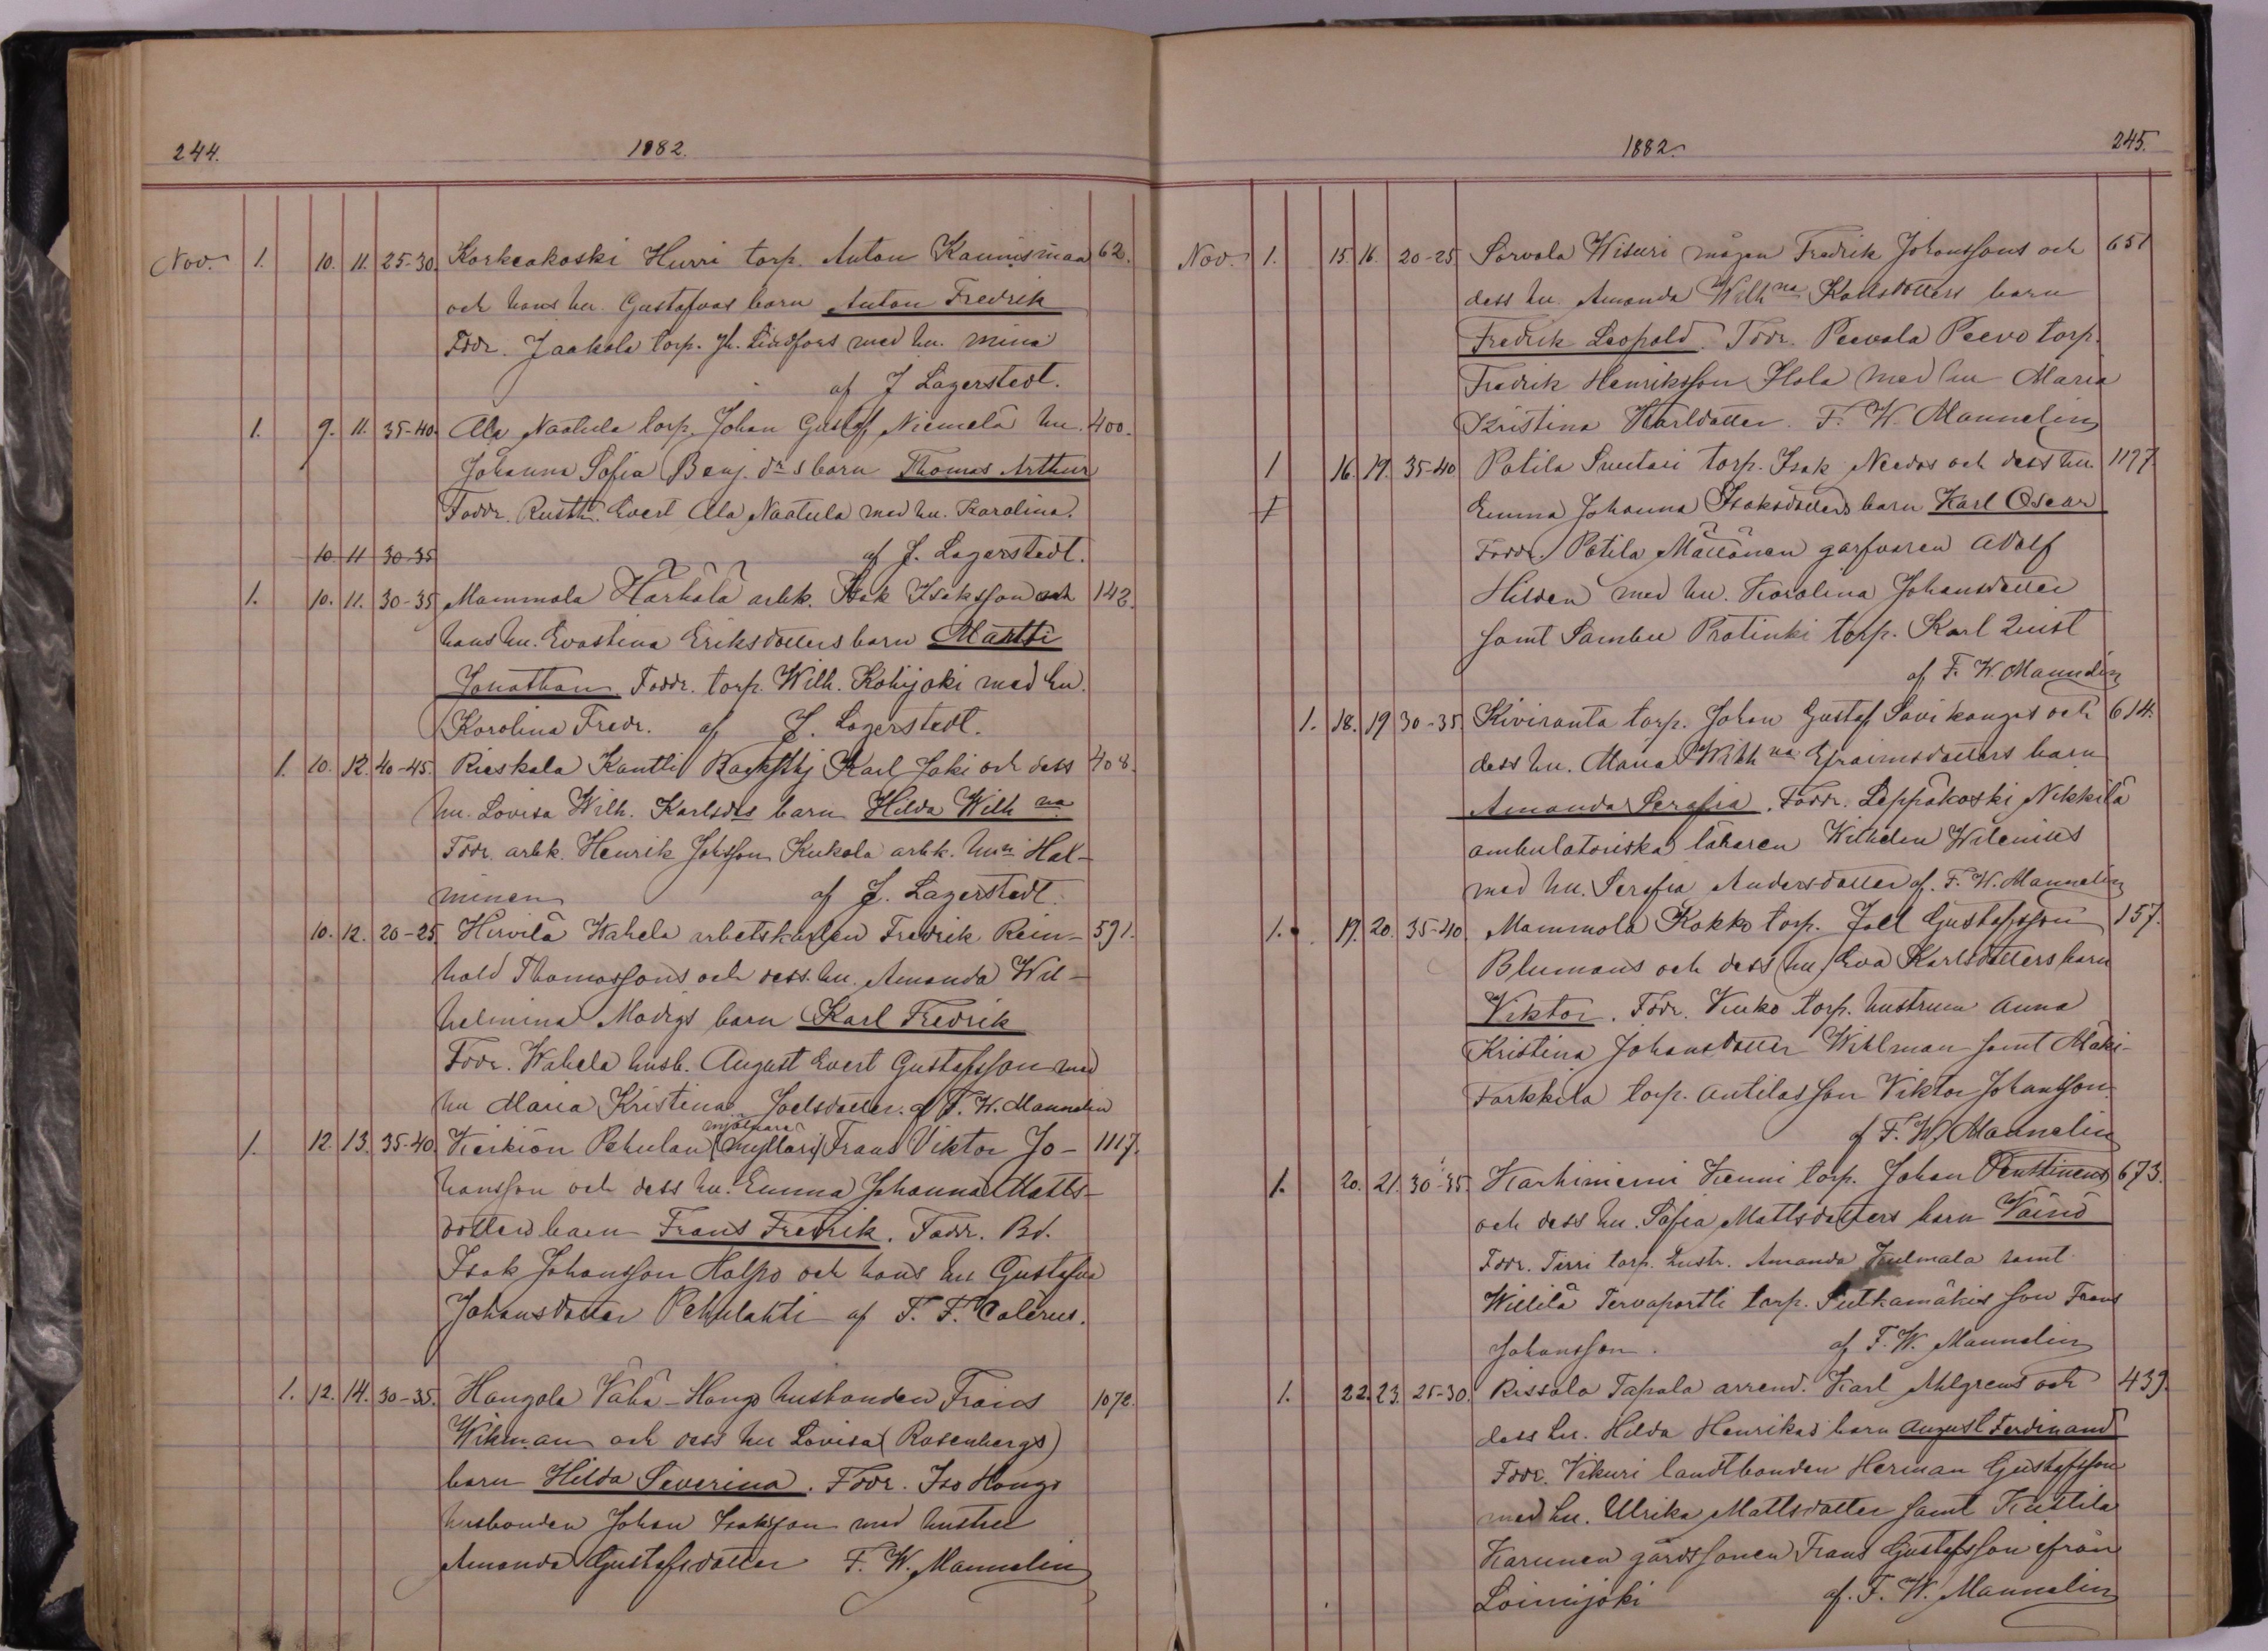 244. 1882.
Nov. 1. 10. 11. 25-30. Korkeakoski Hurri torp. Anton Kaunismaa 62.
och hans hu. Gustafvas barn Anton Fredrik
Fddr. Jaakola torp. Jh. Lindfors med hu. Mina
af J Lagerstedt.
1. 9. 11. 35-40. Ala Naatula torp. Johan Gustaf Niemelä hu. 400.
Johanna Sofia Benj. drs barn Thomas Arthur
Faddr. Rusth. Evert Ala Naatula med hu. Karolina.
10 11 30-35 af J. Lagerstedt.
1. 10. 11. 30-35 Mammala Härkälä arbk. Isak Isaksson och 142.
hans hu. Evastina Eriksdotters barn Martti
Jonathan Faddr. torp. Wilh. Kohijoki med hu.
Karolina Fredr. af J. Lagerstedt.
1. 10. 12. 40-45. Rieskala Kantti Karl Jaki och dess 408.
hu. Lovisa Wilh. Karlsdrs barn Hilda Wilh na
Fddr. arbk. Henrik Johsson Kukola arbk. Hal-
minen af J. Lagerstedt.
10. 12. 20-25 Hirvilä Wahela arbetskarlen Fredrik Rein- 591.
hold Thomassons och dess hu. Amanda Wil-
helmina Modigs barn Karl Fredrik
Fddr. Wahela husb. August Evert Gustafsson med
hu Maria Kristina Joelsdotter. af F. W. Mannelin
mjölnare
1. 12. 13. 35-40. Keikiön Pehulan (Myllari) Frans Viktor Jo- 1117.
hansson och dess hu. Emma Johanna Matts-
dotters barn Frans Fredrik. Faddr. Bd.
Isak Johansson Halpo och hans hu Gustafva
Johansdotter Pehulahti af F. F. Calerus.
1. 12. 14. 30-35. Hangola Vähä-Hongo husbonden Frans 1072.
Wikman och dess hu Lovisa (Rosenbergs)
barn Hilda Severina. Fddr. Iso Hongo
husbonden Johan Isaksson med hustru
Amanda Gustafsdotter F. W. Mannelin
1882. 245.
Nov. 1. 15. 16. 20-25 Sorvola Wisuri mågen Fredrik Johanssons och 651
dess hu. Amanda Wilh na Karlsdotters barn
Fredrik Leopold. Fddr. Peevola Peevo torp.
Fredrik Henriksson Hola med hu Maria
Kristina Karldotter. F. W. Mannelin
1 16. 19. 35-40 Potila Suutari torp. Isak Needos och dess hu. 1197
Emma Johanna Isaksdotters barn Karl Oscar
Faddr. Potila Mällönen garfvaren Adolf
Hilden med hu. Karolina Johansdotter
samt Sambu Protinki torp. Karl Quist
af F. W. Mannelin
1. 18. 19 30-35. Kiviranta torp. Johan Gustaf Savikangas och 614.
dess hu. Maria Wilh na Efraimsdotters barn
Amanda Serafia. Faddr. Leppäkoski Nikkilä
ambulatoriska läraren Wilhelm Wilenius
med hu. Serafia Andersdotter af. F. W. Mannelin
1. 19. 20. 35-40 Mammola Kokko torp. Joel Gustafsson 157.
Blumans och dess hu Eva Karlsdotters barn
Viktor. Fddr. Kuko torp. hustrun Anna
Kristina Johansdotter Wihlman samt Mäki-
Farkkila torp. Antilas son Viktor Johansson
af F. W. Mannelin
1. 20. 21. 30-35. Karhiniemi Kenni torp. Johan Penttinens 673.
och dess hu. Sofia Mattsdotters barn Väinö
Fddr. Tirri torp. hustr. Amanda Kulmala samt
Willilä Tervaportti torp. Sulkamäkis son Frans
Johansson. af F. W. Mannelin
1. 22. 23. 25-30. Rissala Tapala arrend. Karl Ahlgrens och 439.
dess hu. Hilda Henrikas barn August Ferdinand
Fddr. Vikuri landtbonden Herman Gustafsson
med hu. Ulrika Mattsdotter samt Kustila
Karunen gårdssonen Frans Gustafsson ifrån
Loimijoki af. F. W. Mannelin